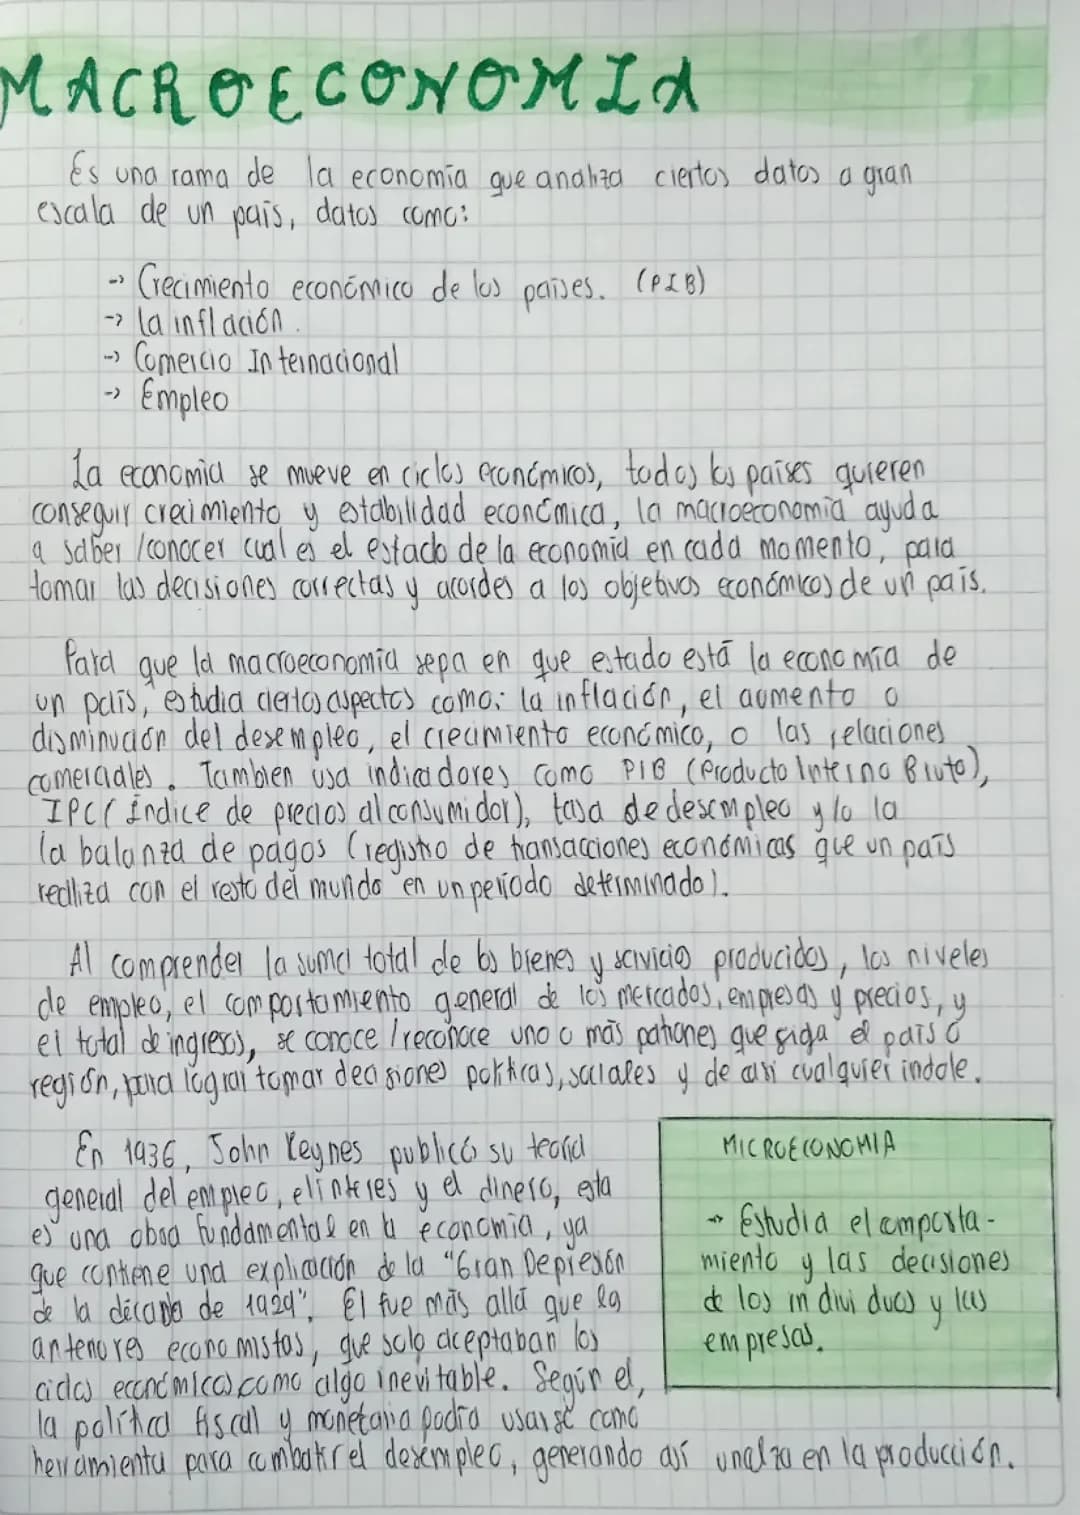 MACROECONOMIA
Es una rama de la economía que analiza ciertos datos a gran
escala de un país, datos como:
-> Crecimiento económico de los países. (PIB)
-> La inflación.
-> Comercio Internacional
-> Empleo
La economía se mueve en ciclos económicos, todos los países quieren
conseguir crecimiento y estabilidad económica, la macroeconomía ayuda
a saber/conocer cual es el estado de la economía en cada momento, para
tomar las decisiones correctas y acordes a los objetivos económicos de un país.
Para que la macroeconomía sepa en que estado está la economía de
un país, estudia ciertos aspectos como: la inflación, el aumento o
disminución del desempleo, el crecimiento económico, o las relaciones
comerciales. Tambien usa indicadores como PIB (Producto Interno Bruto),
IPC (Índice de precios al consumidor), tasa de desempleo y/o la
la balanza de pagos (registro de transacciones económicas que un país
realiza con el resto del mundo en un período determinado).
Al comprender la suma total de los bienes y servicios producidos, los niveles
de empleo, el comportamiento general de los mercados, empresas y precios, y
el total de ingresos, se conoce/reconoce uno o más patrones que siga el país o
región, para lograr tomar decisiones políticas, sociales y de casi cualquier indole.
En 1936, John Keynes publicó su teoría
general del empleo, el interes y el dinero, esta
es una obra fundamental en la economía, ya
que contiene una explicación de la "Gran Depresión
de la década de 1929". El fue más allá que los
anteriores economistas, que solo aceptaban los
ciclos económicos como algo inevitable. Según el,
la política fiscal y monetaria podía usarse como
herramienta para combatir el desempleo, generando así un alza en la producción.
MICROECONOMIA
-> Estudia el comporta-
miento y las decisiones
de los individuos y las
empresas.